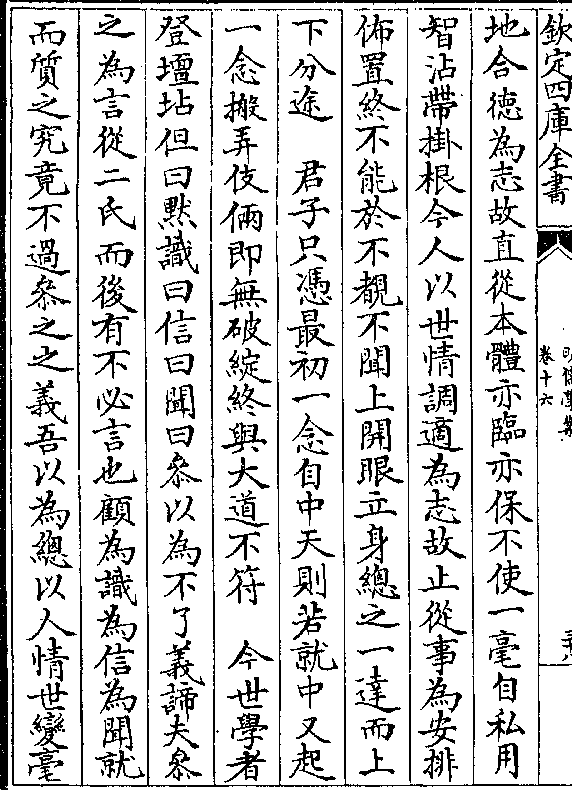 欽定四庫全書
明儒學案
卷十六
地合徳為志故直從本體亦臨亦保不使一毫自私用
智沾帶掛根今人以世情調適為志故止從事為安排
佈置終不能於不覩不聞上開眼立身總之一達而上
下分途　君子只憑最初一念自中天則若就中又起
一念搬弄伎倆即無破綻終與大道不符　今世學者
登壇坫但曰黙識曰信曰聞曰叅以為不了義諦夫叅
之為言從二氏而後有不必言也顧為識為信為聞就
而質之究竟不過叅之之義吾以為總以人情世變毫